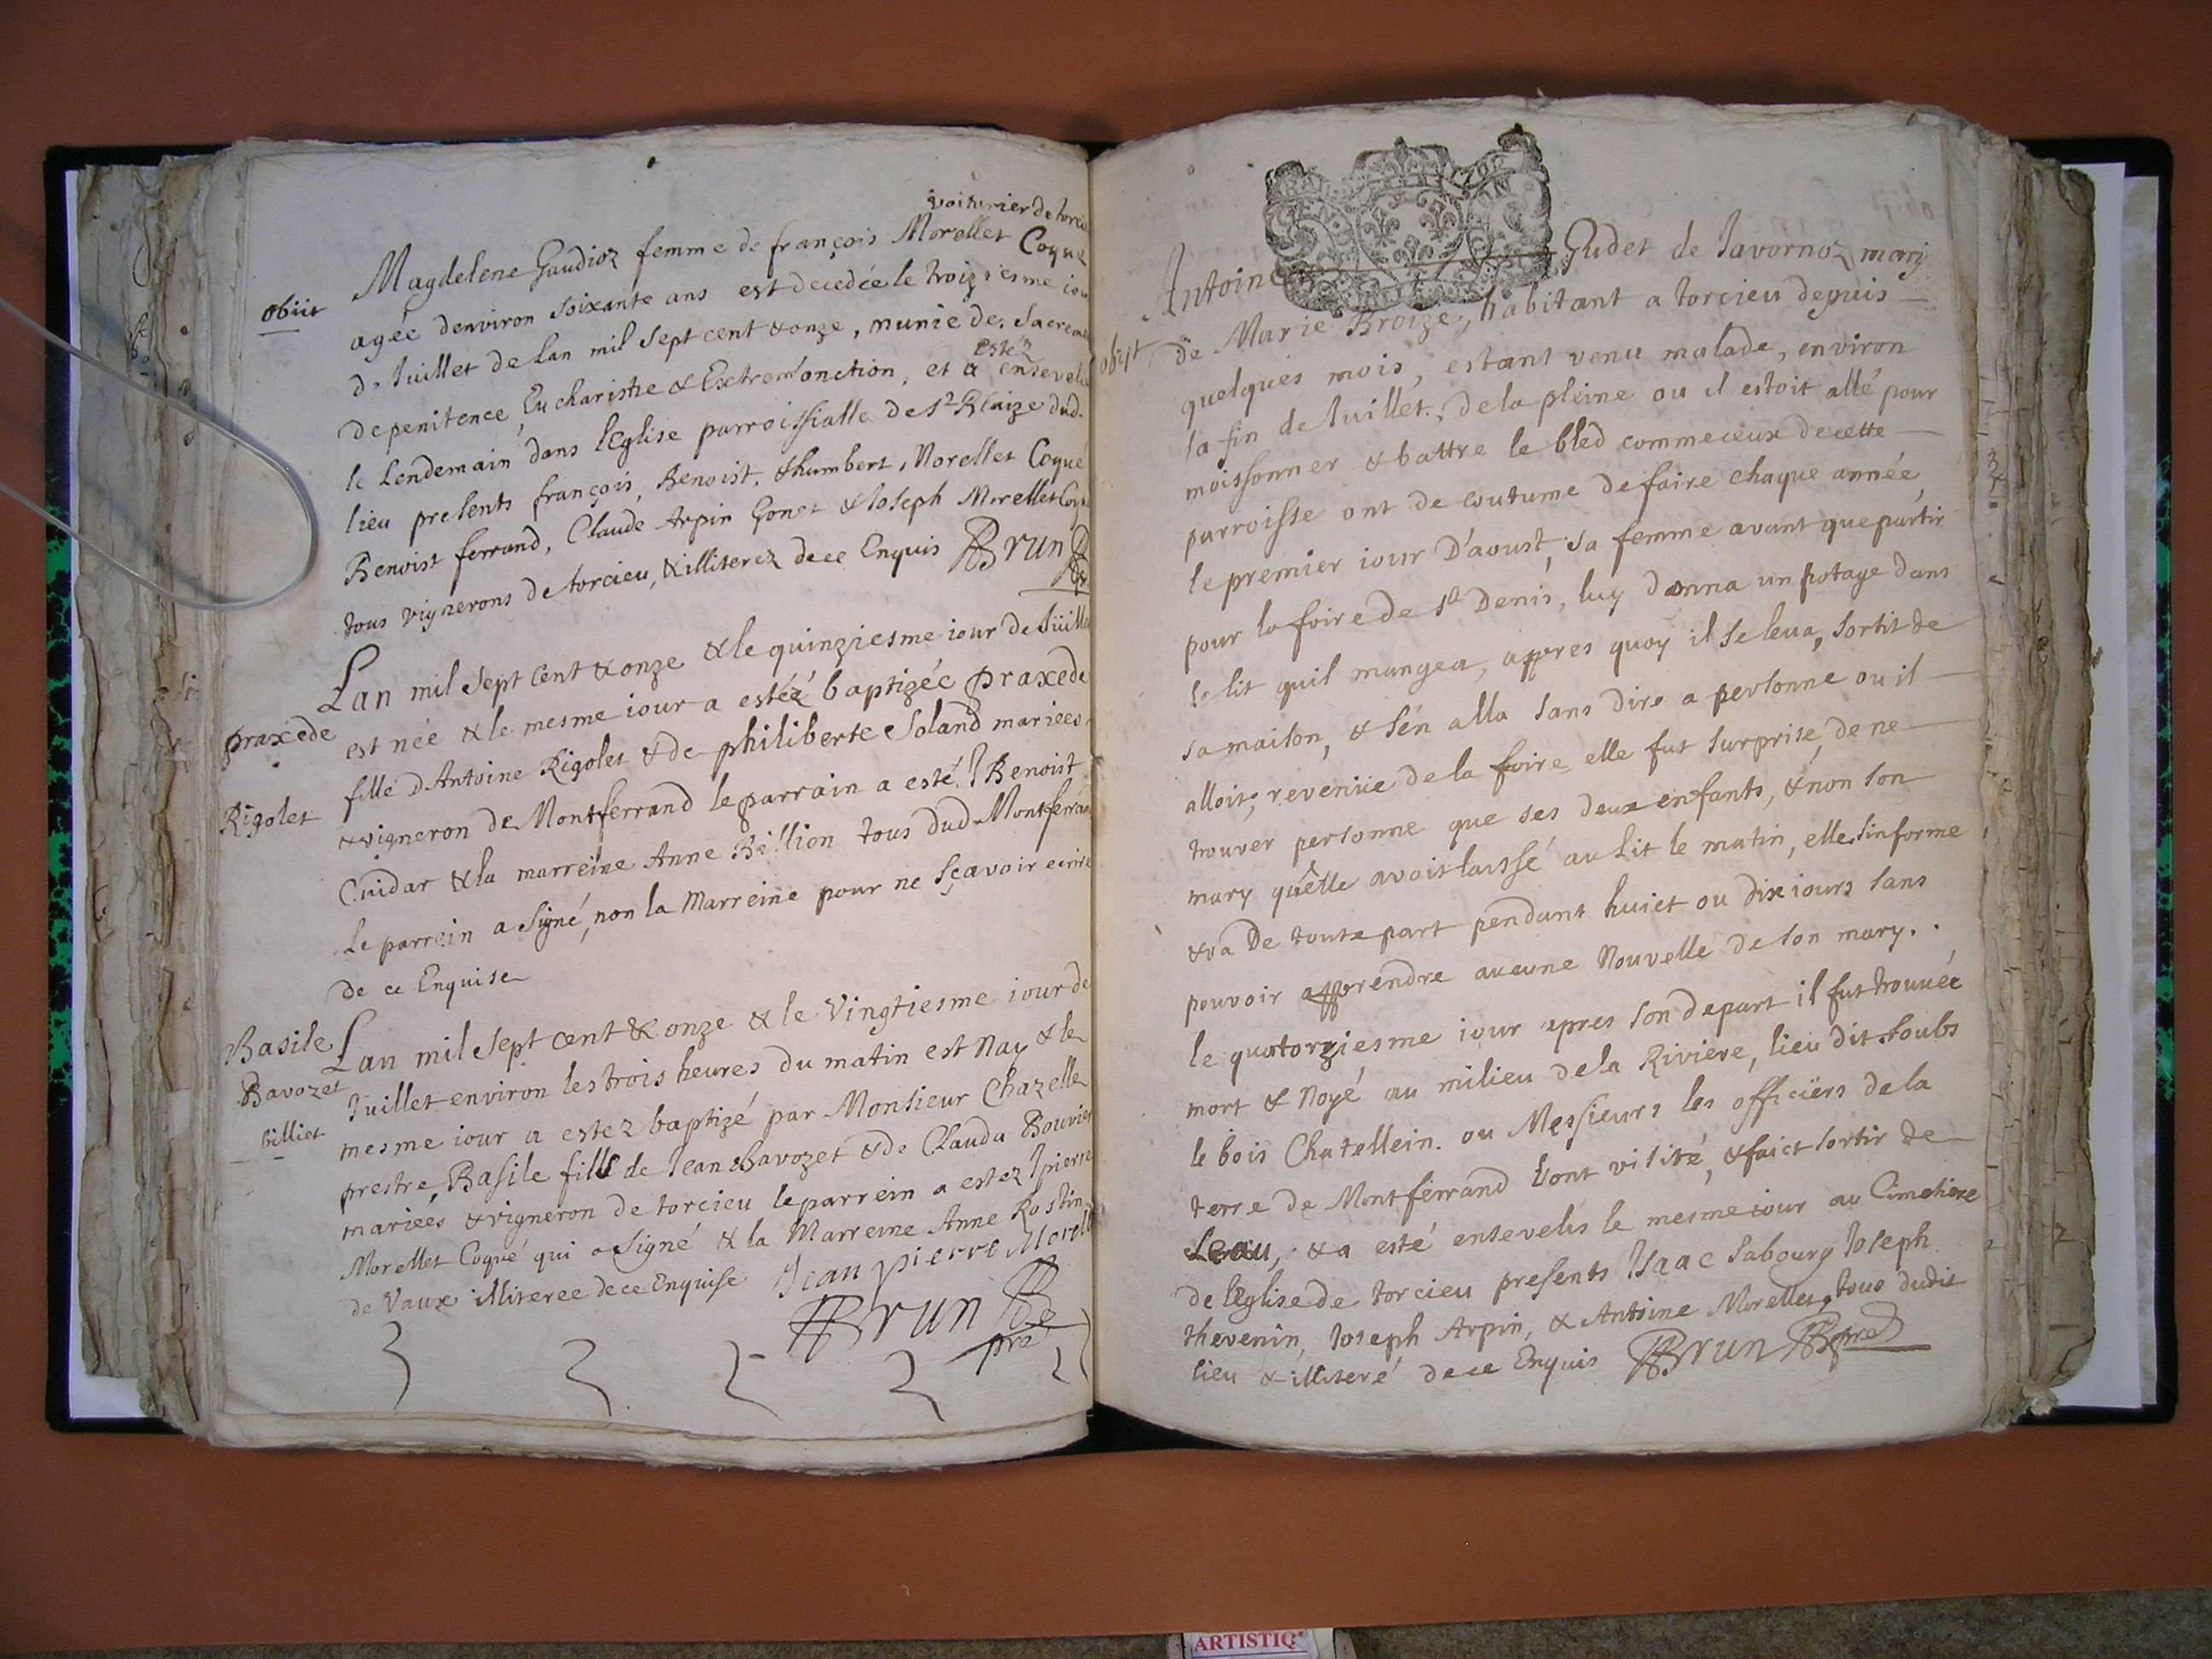 voiturier de torcieu
Magdelene Gaudioz femme de françois Morellet Coqué
obiit
agée denviron soixante ans est decedée le troiziesme iour
de Juillet de Lan mil sept cent & onze, munie des sacremens
esté
de penitence, Eucharistie & Extremonction, et a ensevelie
le Lendemain dans lEglise parroissialle de St Blaize dud.
lieu presents françois, Benoist, & humbert, Morellet Coqué
Benoist ferrand, Claude Arpin Gonet & Joseph Morellet Coqué
tous vignerons de torcieu, & illiterez de ce Enquis Brun
Lan mil sept Cent & onze & le quinziesme iour de Juillet
praxede
est née & le mesme iour a estéé baptizée praxede
fille D Antoine Rigolet & de philiberte Soland mariees
Rigolet
& vigneron de Montferrand le parrain a esté Benoist
Cuidar & la marreine Anne Billion tous dud Montferrand
Le parrein a signé, non la Marreine pour ne sçavoir ecrire
de ce Enquise
Basile
Lan mil sept cent & onze & le Vingtiesme iour de
Bavozet
Juillet environ les trois heures du matin est Nay & le
billiet
mesme iour a estez baptizé par Monsieur Chazelle
prestre, Basile fils de Jean Bavozet & de Clauda Bouvier
mariees & vigneron de torcieu le parrein a estez J pierre
Morellet Coqué qui a signé & la Marreine Anne Rostin
de Vaux illiteree de ce Enquise Jean pierre Morellet
Brun
pre
Antoine Gudet de Javornoz mary
obijt
de Marie Broize, habitant a torcieu depuis
quelques mois, estant venu malade, environ
la fin de Juillet, de la pleine ou il estoit allé pour
moissonner & battre le bled comme ceux de cette
parroisse ont de coutume de faire chaque année,
le premier iour D'aoust, sa femme avant que partir
pour la foire de St Denis, luy donna un potage dans
le lit quil mangea, appres quoy il se leua, sortit de
sa maison, & s'en alla sans dire a personne ou il
alloit; revenüe de la foire elle fut surprise, de ne
trouver personne que ses deux enfants, & non son
mary qu'elle avoit laissé au Lit le matin, elle sinforme
& va De toute part pendant huict ou dix iours sans
pouvoir apprendre aucune Nouvelle de son mary..
le quatorziesme iour apres son depart il fut trouuée
mort & Noyé au milieu de la Riviere, lieu dit soubs
le bois Chatellein. ou Messieurs les officiers de la
terre de Montferrand Lont visité, & faict sortir de
Leau, & a esté ensevelis le mesme iour au Cimetiere
de lEglise de torcieu presents Isaac Sabourg Joseph
thevenin, Joseph Arpin, & Antoine Morellet, tous dudit
lieu & illiteré de ce Enquis Brun pre
ARTISTIQ